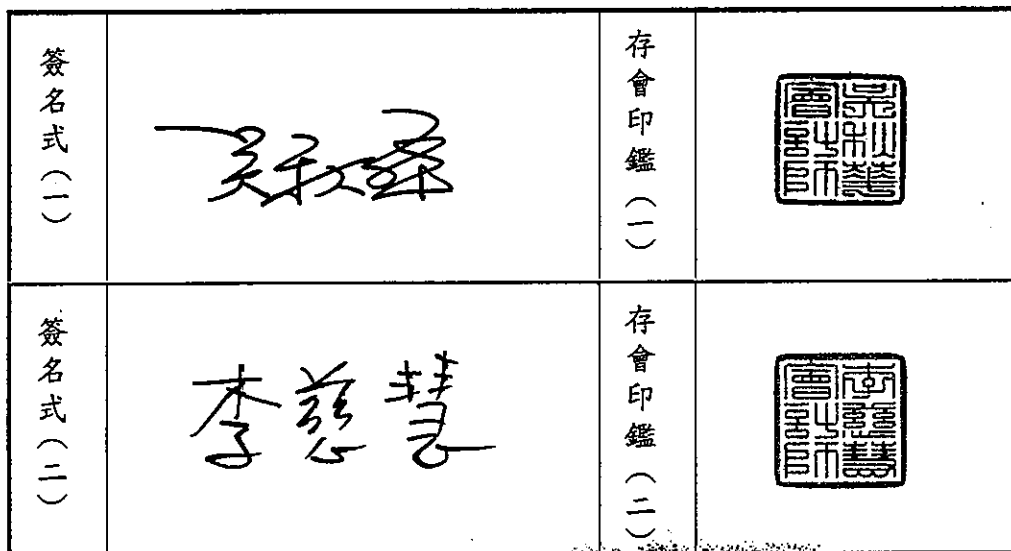 簽名式(一)
吳秋華
存會印鑑(一)
吳秋華會計師
簽名式(二)
李慈慧
存會印鑑(二)
李慈慧會計師